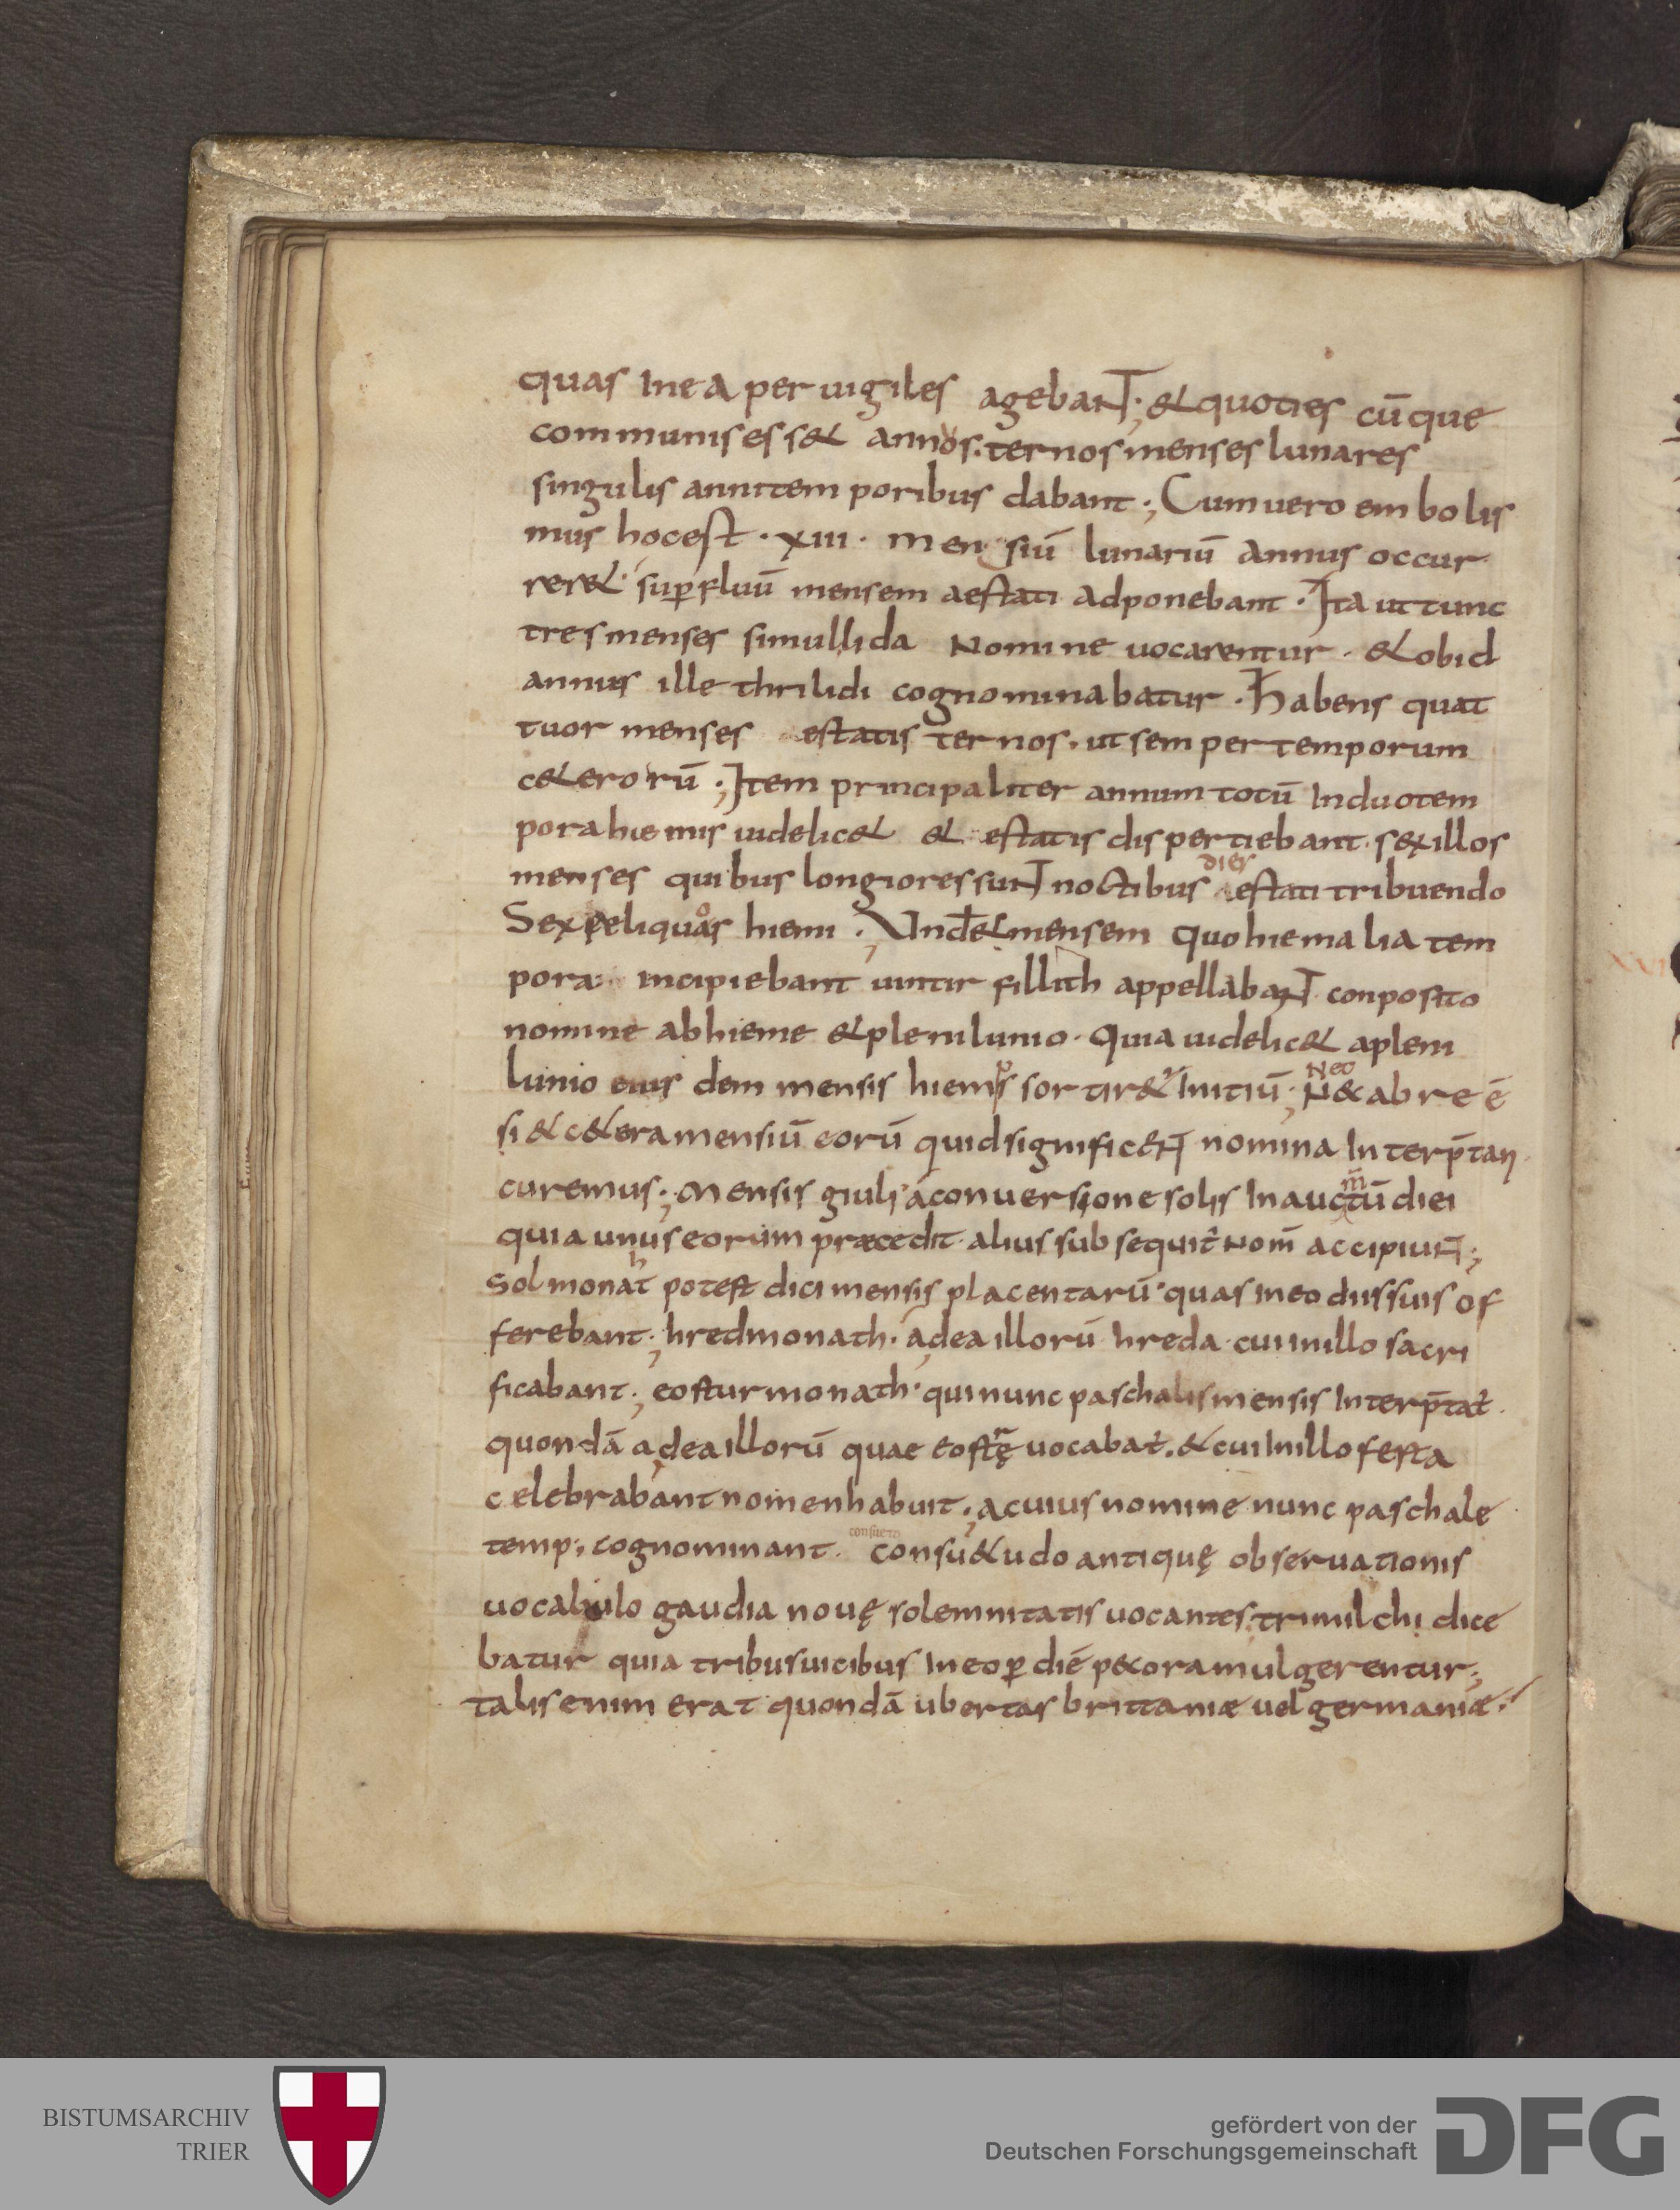 quas inea peruigiles agebant; & quoties cūque
communis ess& annos. ternos menses lunares
singulis annitemporibus dabant; Cum uero embolis
mus hocest · xiii · mensiū lunariū annus occur
rer& · sup̄fluū mensem aestati adponebant · Ita ut tunc
tres menses simul lida nomine uocarentur · & obid
annus ille thrilidi cognominabatur · habens quat
tuor menses estatis ternos. ut semper temporum
c&erorū; Item principaliter annum totū induotem
pora hiemis uidelic& & estatis dispertiebant. sex illos
menses quibus longiores sunt noctibus dies estati tribuendo
Sex reliquos hiemi; Und& mensem quo hiemalia tem
pora incipiebant uintir fillith appellabant conposito
nomine abhieme & plenilunio · quia uidelic& apleni
lunio eius dem mensis hiemps sortir& initiū; N& ab re ē
Neo
si & c&era mensiū eorū quid signific&n̄t nomina interp̄tari
curemus; Mensis giuli áconuersione solis in auctū diei
m̄
quia unus eorum præcedit · alius subsequit̄ nom̄ accipiunt;
sol monath potest dici mensis placentarū · quas in eo diis suis of
ferebant; hredmonath · a dea illorū hreda · cui in illo sacri
ficabant; eosturmonath · qui nunc paschalis mensis interp̄tat̄
quondā a dea illorū quae eostrę uocabat̄. & cui in illo festa
celebrabant nomen habuit; a cuius nomine nunc paschale
temp; cognominant. consu&udo antiquę obseruationis
consueto
uocabulo gaudia nouę solemnitatis uocantes. trimilchi dice
batur quia tribus uicibus in eo p̄ diē pecora mulgerentur;
talis enim erat quondā ubertas brittaniæ uel germaniæ.
BISTUMSARCHIV
TRIER
gefördert von der
Deutschen Forschungsgemeinschaft
DFG